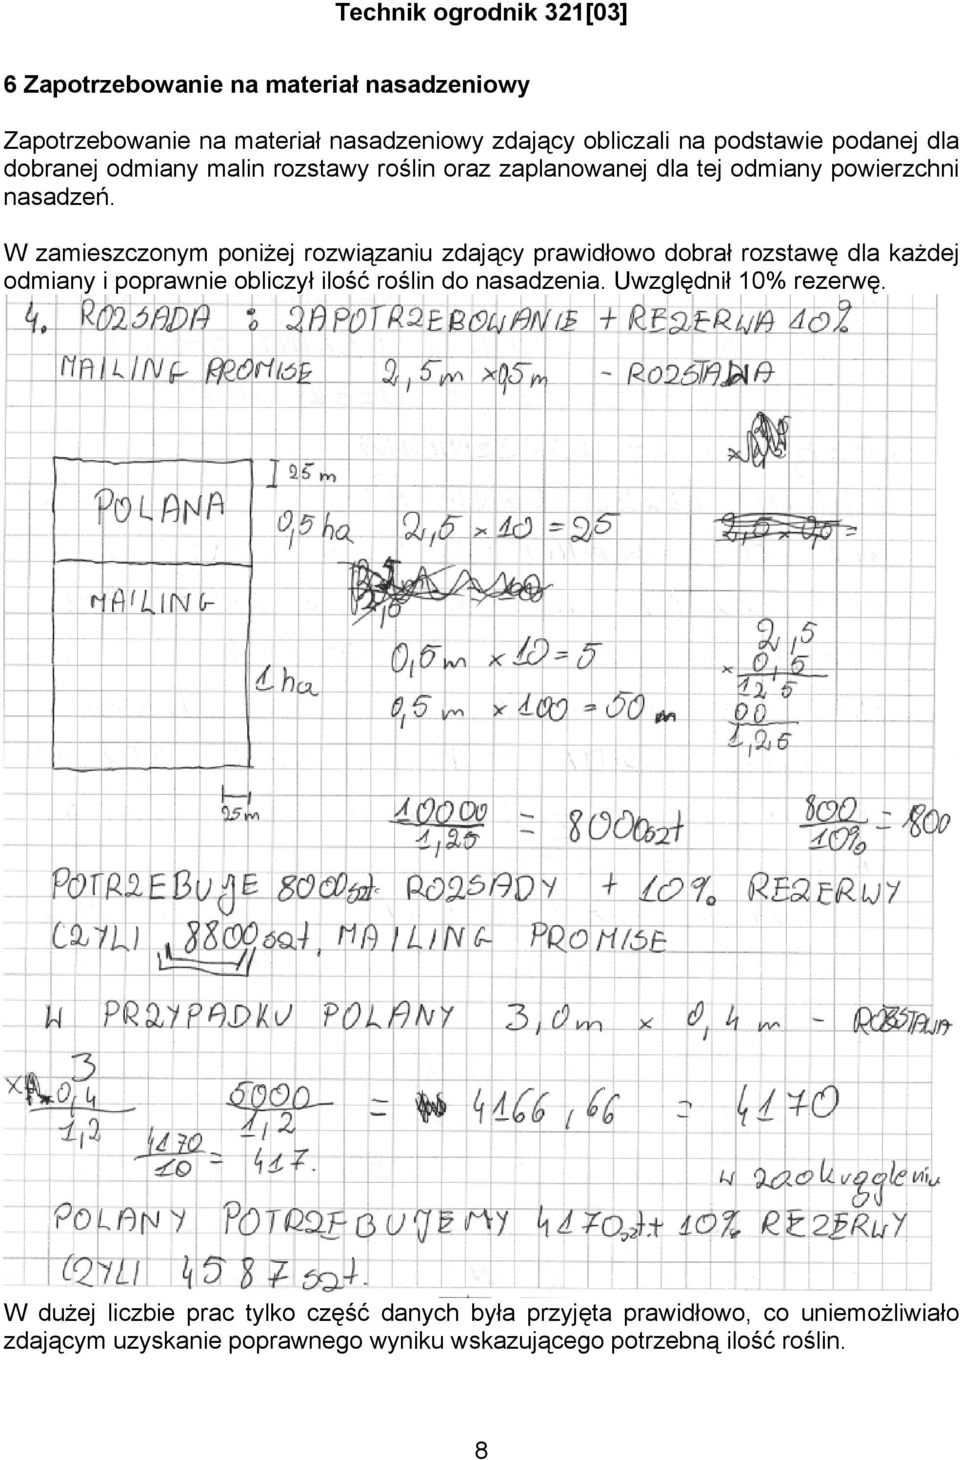 Technik ogrodnik 321[03]
6 Zapotrzebowanie na materiał nasadzeniowy
Zapotrzebowanie na materiał nasadzeniowy zdający obliczali na podstawie podanej dla
dobranej odmiany malin rozstawy roślin oraz zaplanowanej dla tej odmiany powierzchni
nasadzeń.
W zamieszczonym poniżej rozwiązaniu zdający prawidłowo dobrał rozstawę dla każdej
odmiany i poprawnie obliczył ilość roślin do nasadzenia. Uwzględnił 10% rezerwę.
4. ROZSADA : ZAPOTRZEBOWANIE + REZERWA 10%
MAILING PROMISE 2,5m x 0,5m - ROZSTAWA
25m
POLANA
0,5ha 2,5 x 10 = 25 2,5 x 0,5 =
MAILING
0,5m x 10 = 5
1ha
0,5m x 100 = 50 m
2,5
x 0,5
125
00
1,25
25m
10000/1,25 = 8000szt 800/10% = 800
POTRZEBUJE 8000szt. ROZSADY + 10% REZERWY
CZYLI 8800szt. MAILING PROMISE
W PRZYPADKU POLANY 3,0m x 0,4m - ROZSTAWA
3
x 0,4
1,2
5000/1,2 = 4166,66 = 4170
4170/10 = 417.
w zaokrągleniu
POLANY POTRZEBUJEMY 4170szt. + 10% REZERWY
CZYLI 4587szt.
W dużej liczbie prac tylko część danych była przyjęta prawidłowo, co uniemożliwiało
zdającym uzyskanie poprawnego wyniku wskazującego potrzebną ilość roślin.
8